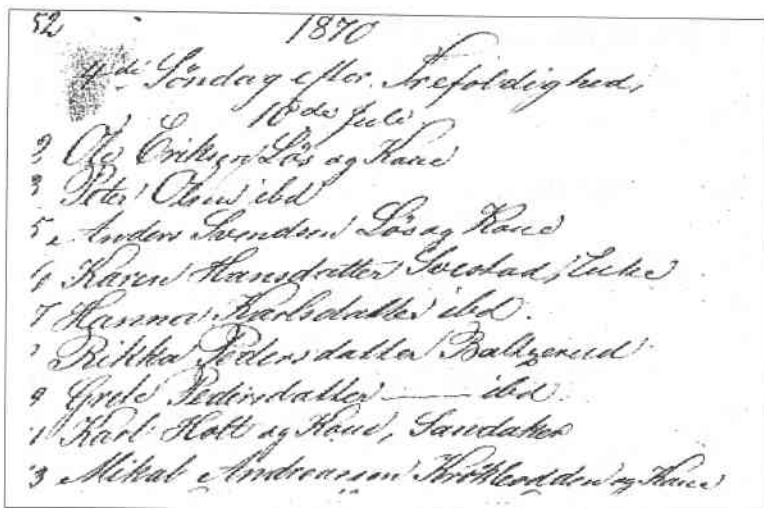 52 1870
4de Söndag efter Trefoldighed,
10de Juli
2 Ole Eriksen Lös og Kone
3 Peter Olsen ibd
5 Anders Svendsen Lös og Kone
6 Karen Hansdatter Svestad, Enke
7 Hanna Karlsdatter ibd.
7 Rikka Pedersdatter Baltzerud
9 Grete Pedersdatter — ibd.
1 Karl Holt og Kone, Sandaker
3 Mikal Andreassen Krokkodden og Kone